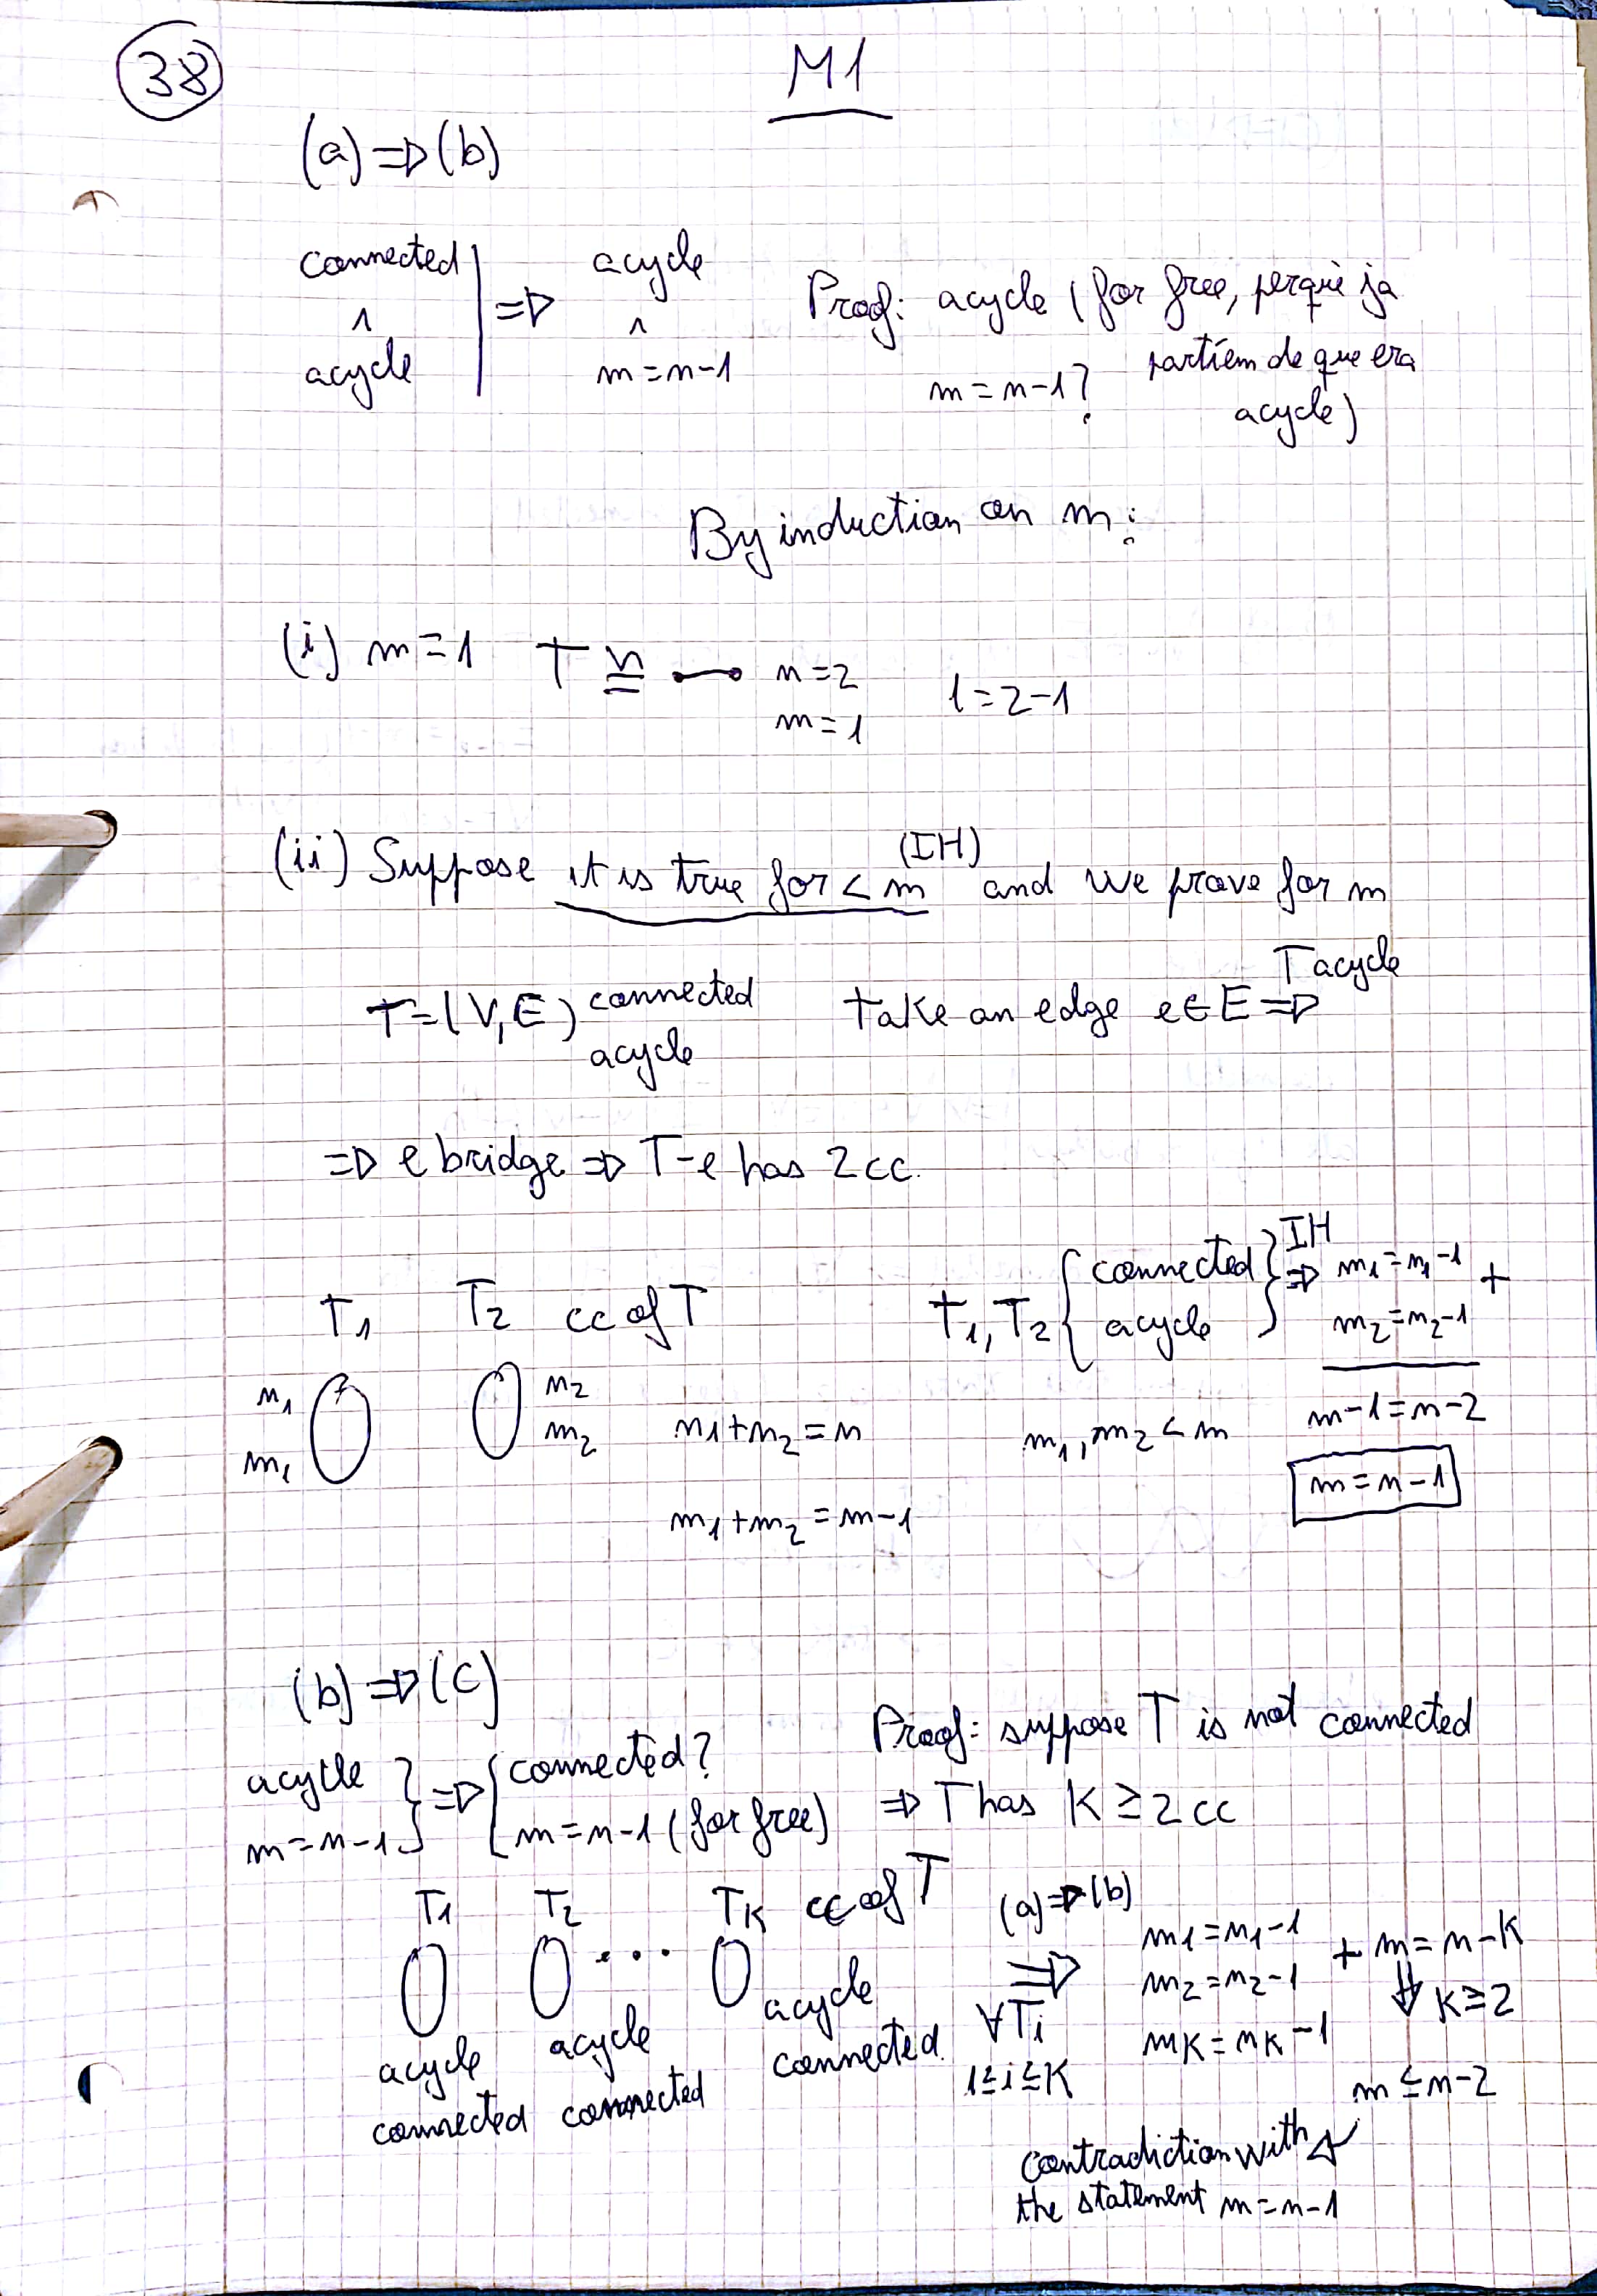 38
M1
(a) ⇒ (b)
connected ∧ acycle | ⇒ acycle ∧ m = n-1
Proof: acycle (for free, perquè ja
partíem de que era
acycle)
m = n-1?
By induction on m:
(i) m = 1 T ≅ n = 2 m = 1 1 = 2-1
(ii) Suppose it is true for < m (IH) and we prove for m
T = (V, E) connected acycle take an edge e ∈ E ⇒ T acycle
⇒ e bridge ⇒ T-e has 2 cc.
T1 T2 cc of T
n1 m1 n2 m2
n1 + n2 = n
m1 + m2 = m-1
T1, T2 { connected acycle } IH ⇒ m1 = n1-1 +
m2 = n2-1
m1, m2 < m
m-1 = n-2
m = n-1
(b) ⇒ (c)
acycle m = n-1 } ⇒ { connected? m = n-1 (for free)
Proof: suppose T is not connected
⇒ T has K ≥ 2 cc
T1 T2 ... TK cc of T
acycle connected
acycle connected
acycle connected
(a) ⇒ (b)
⇒
∀Ti
1 ≤ i ≤ K
m1 = n1-1
m2 = n2-1
mK = nK-1
+ m = n-K
⇓ K ≥ 2
m ≤ n-2
contradiction with
the statement m = n-1